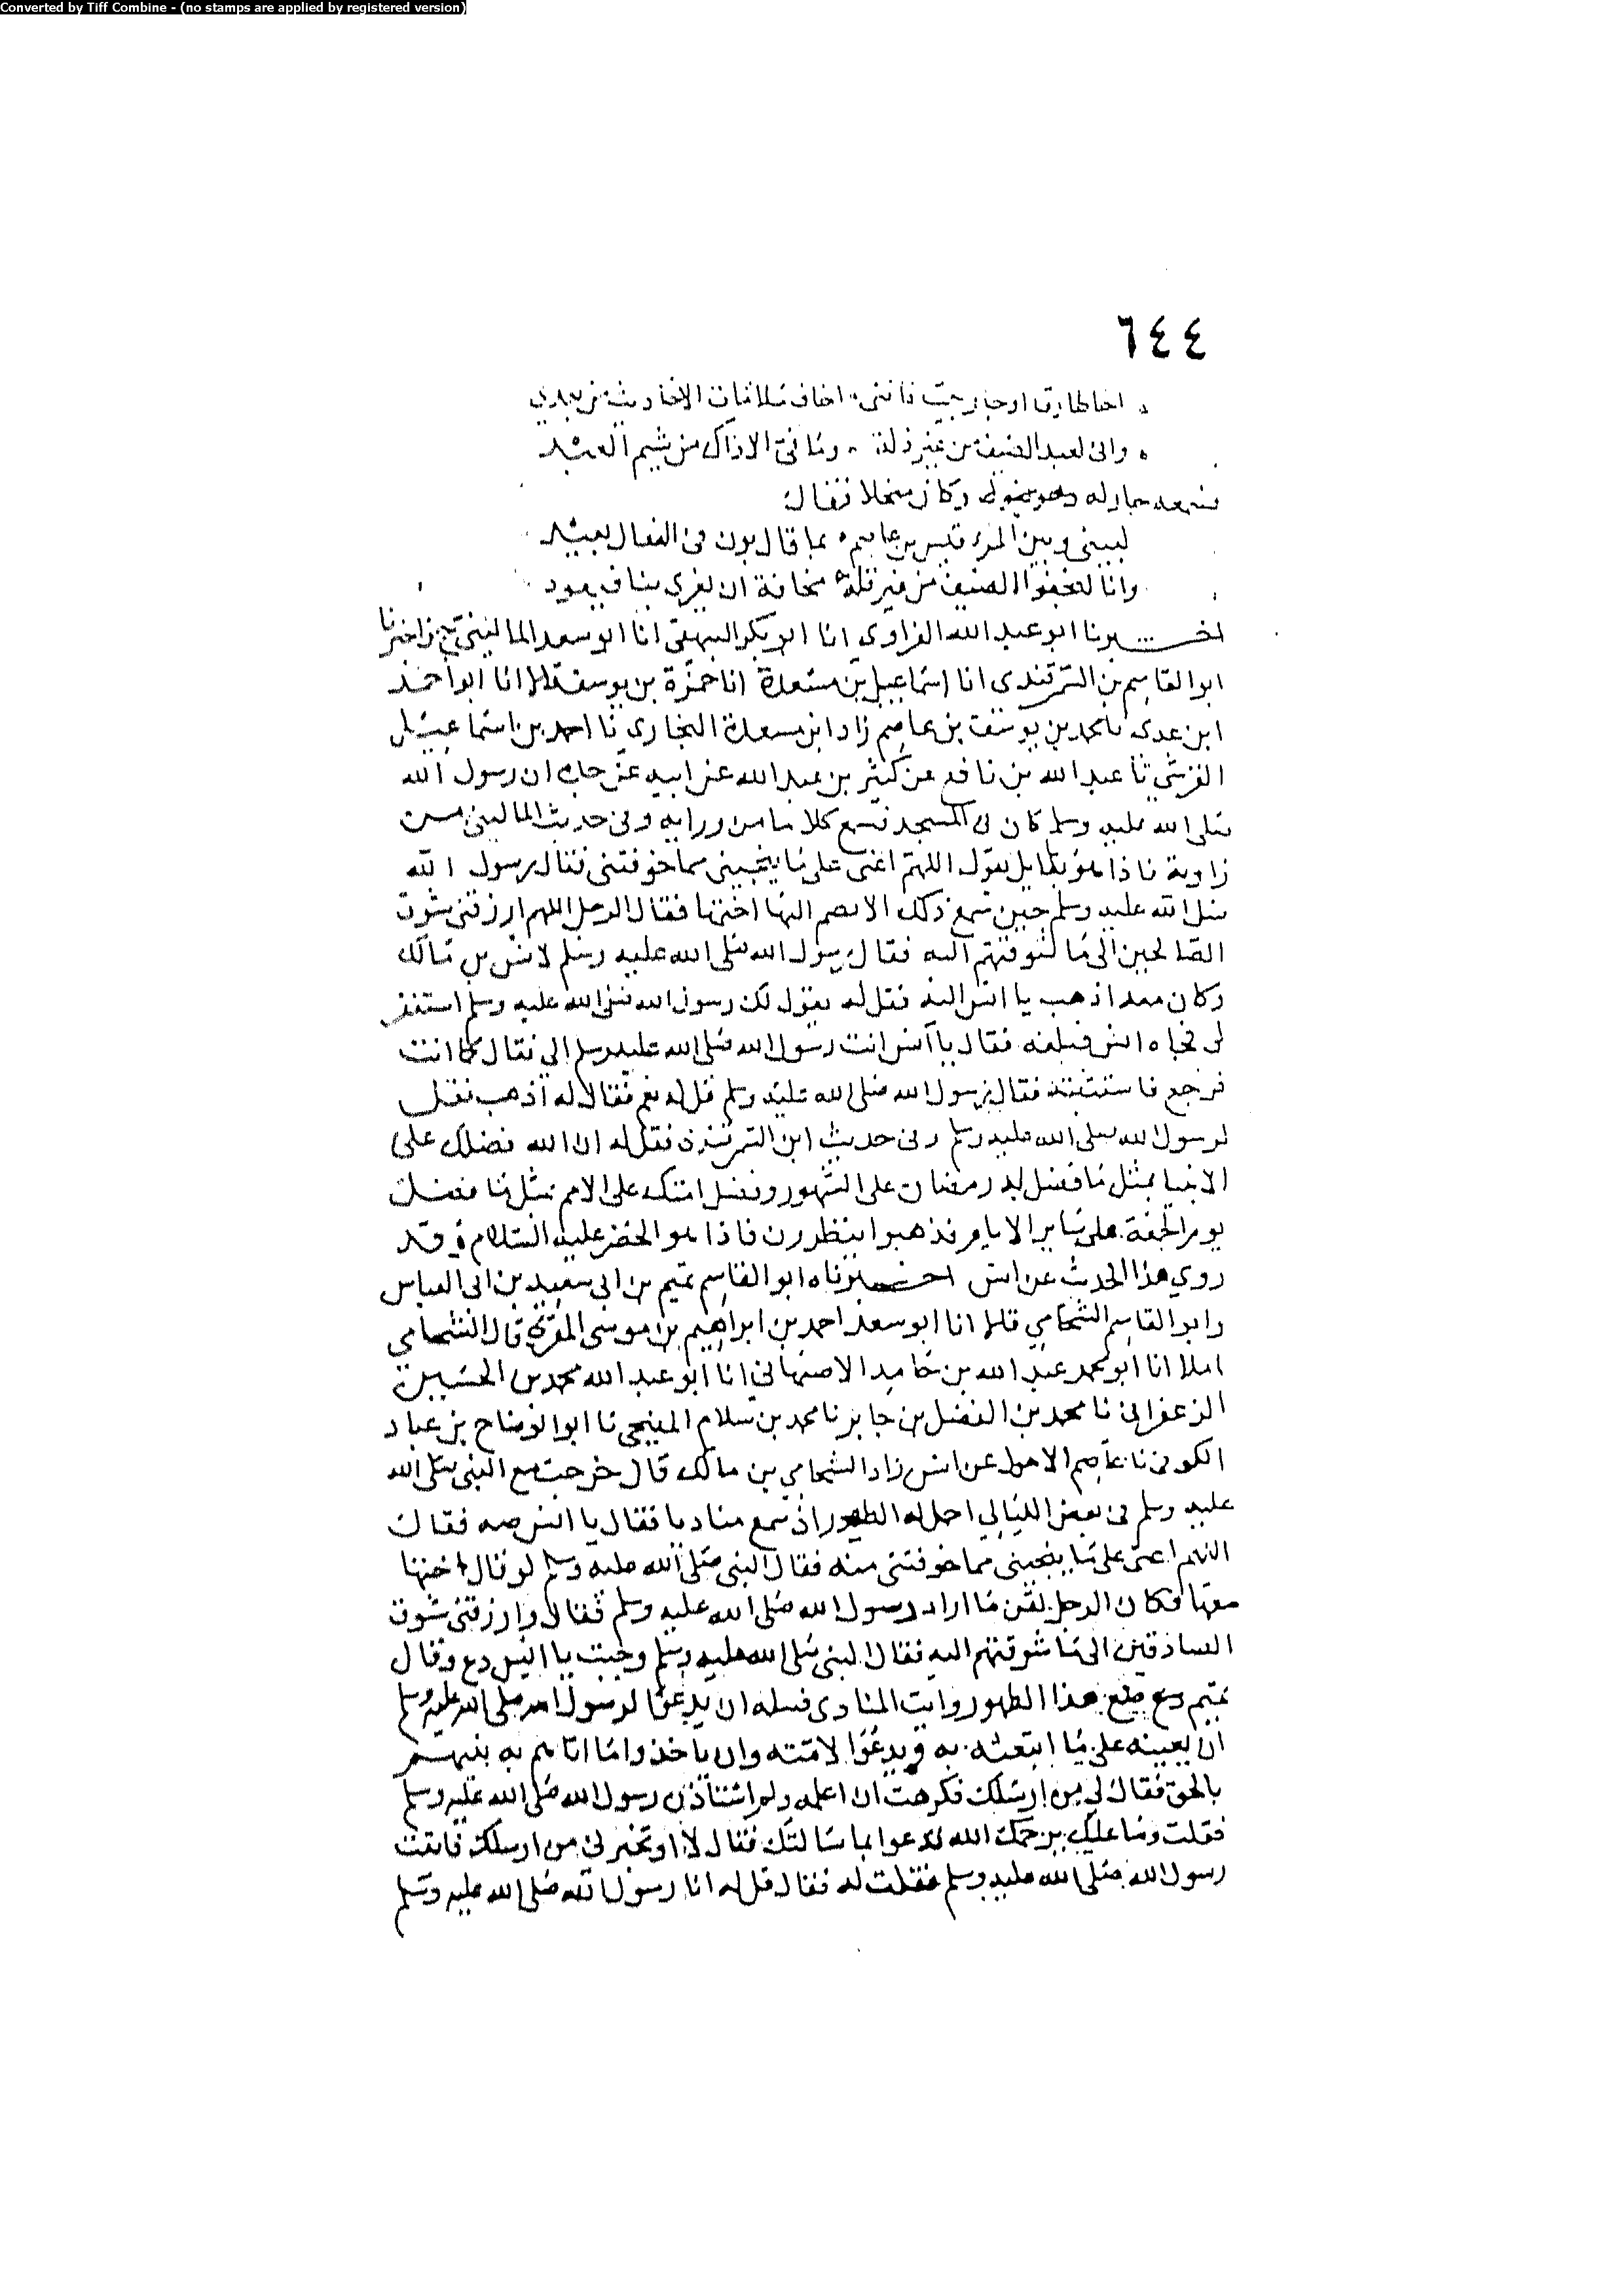 Converted by Tiff Combine - (no stamps are applied by registered version)
٦٤٤
اخا طارقا او جار بيت فاننى اخاف ملامات الاحاديث من بعدي
وانى لعبد الضيف من غير ذلة وما فى الا ذاك من شيم العبد
فسمعه جار له وكان مبخلا فقال
لبينى وبين المرء قيس بن عاصم بما قال بون فى الفعال بعيد
وانا لنجفوا الضيف من غير قلة مخافة ان يغرى بنا فيعود
اخـــبرنا ابو عبد الله الفراوى انا ابو بكر البيهقى انا ابو سعد المالينى ح واخبرنا
ابو القاسم بن السمرقندى انا اسماعيل بن مسعدة انا حمزة بن يوسف قالا انا ابو احمد
ابن عدى نا محمد بن يوسف بن عاصم زاد ابن مسعدة البخاري نا احمد بن اسماعيل
القرشي نا عبد الله بن نافع عن كثير بن عبد الله عن ابيه عن جده ان رسول الله
صلى الله عليه وسلم كان فى المسجد فسمع كلاما من ورايه وفى حديث المالينى من
زاوية فاذا هو بقايل يقول اللهم اعنى على ما ينجينى مما خوفتنى فقال رسول الله
صلى الله عليه وسلم حين سمع ذلك الا تضم اليها اختها فقال الرجل اللهم ارزقنى شوق
الصالحين الى ما شوقتهم اليه فقال رسول الله صلى الله عليه وسلم لانس بن مالك
وكان معه اذهب يا انس اليه فقل له يقول لك رسول الله صلى الله عليه وسلم استغفر
لى فجاه انس فبلغه فقال يا انس انت رسول رسول الله صلى الله عليه وسلم الي فقال كما انت
فرجع فاستثبته فقال رسول الله صلى الله عليه وسلم قل له نعم فقال له اذهب فقل
لرسول الله صلى الله عليه وسلم وفى حديث ابن السمرقندى فقل له ان الله فضلك على
الانبيا بمثل ما فضل به رمضان على الشهور وفضل امتك على الامم مثل ما فضل
يوم الجمعة على ساير الايام فذهبوا ينظرون فاذا هو الخضر عليه السلام وقد
روي هذا الحديث عن انس اخـــبرناه ابو القاسم تميم بن ابى سعيد بن ابى العباس
وابو القاسم الشحامي قالا انا ابو سعد احمد بن ابراهيم بن موسى المقرئ قال الشحامي
املا انا ابو محمد عبد الله بن حامد الاصبهاني انا ابو عبد الله محمد بن الحسين
الزعفرانى نا محمد بن الفضل بن جابر نا محمد بن سلام المنبجى نا ابو الوضاح بن عباد
الكوفى نا عاصم الاحول عن انس زاد الشحامي بن مالك قال خرجت مع النبى صلى الله
عليه وسلم فى بعض الليالي احمل له الطهور اذ سمع مناديا فقال يا انس صه فقال
اللهم اعنى على ما ينجينى مما خوفتنى منه فقال النبى صلى الله عليه وسلم لو قال اختها
معها فكان الرجل لقن ما اراد رسول الله صلى الله عليه وسلم فقال وارزقنى شوق
الصادقين الى ما شوقتهم اليه فقال النبى صلى الله عليه وسلم وجبت يا انس دع وقال
تميم دع هذا الطهور وايت المنادى فسله ان يدعوا لرسول الله صلى الله عليه وسلم
ان يعينه على ما ابتعثه به ويدعوا لامته وان ياخذوا ما اتاهم به نبيهم
بالحق فقال لي من ارسلك فكرهت ان اعلمه ولم استاذن رسول الله صلى الله عليه وسلم
فقلت وما عليك يرحمك الله تدعوا بما سالتك فقال لا او تخبرنى من ارسلك فاتيت
رسول الله صلى الله عليه وسلم فقلت له فقال قل له انا رسول رسول الله صلى الله عليه وسلم